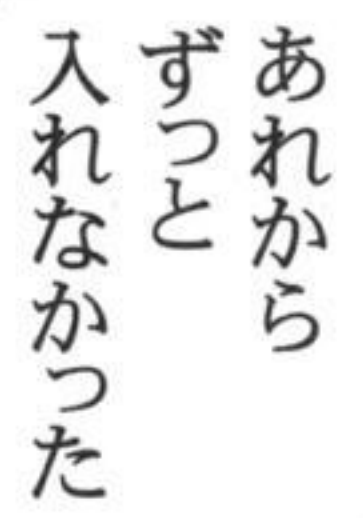 あれから
ずっと
入れなかった